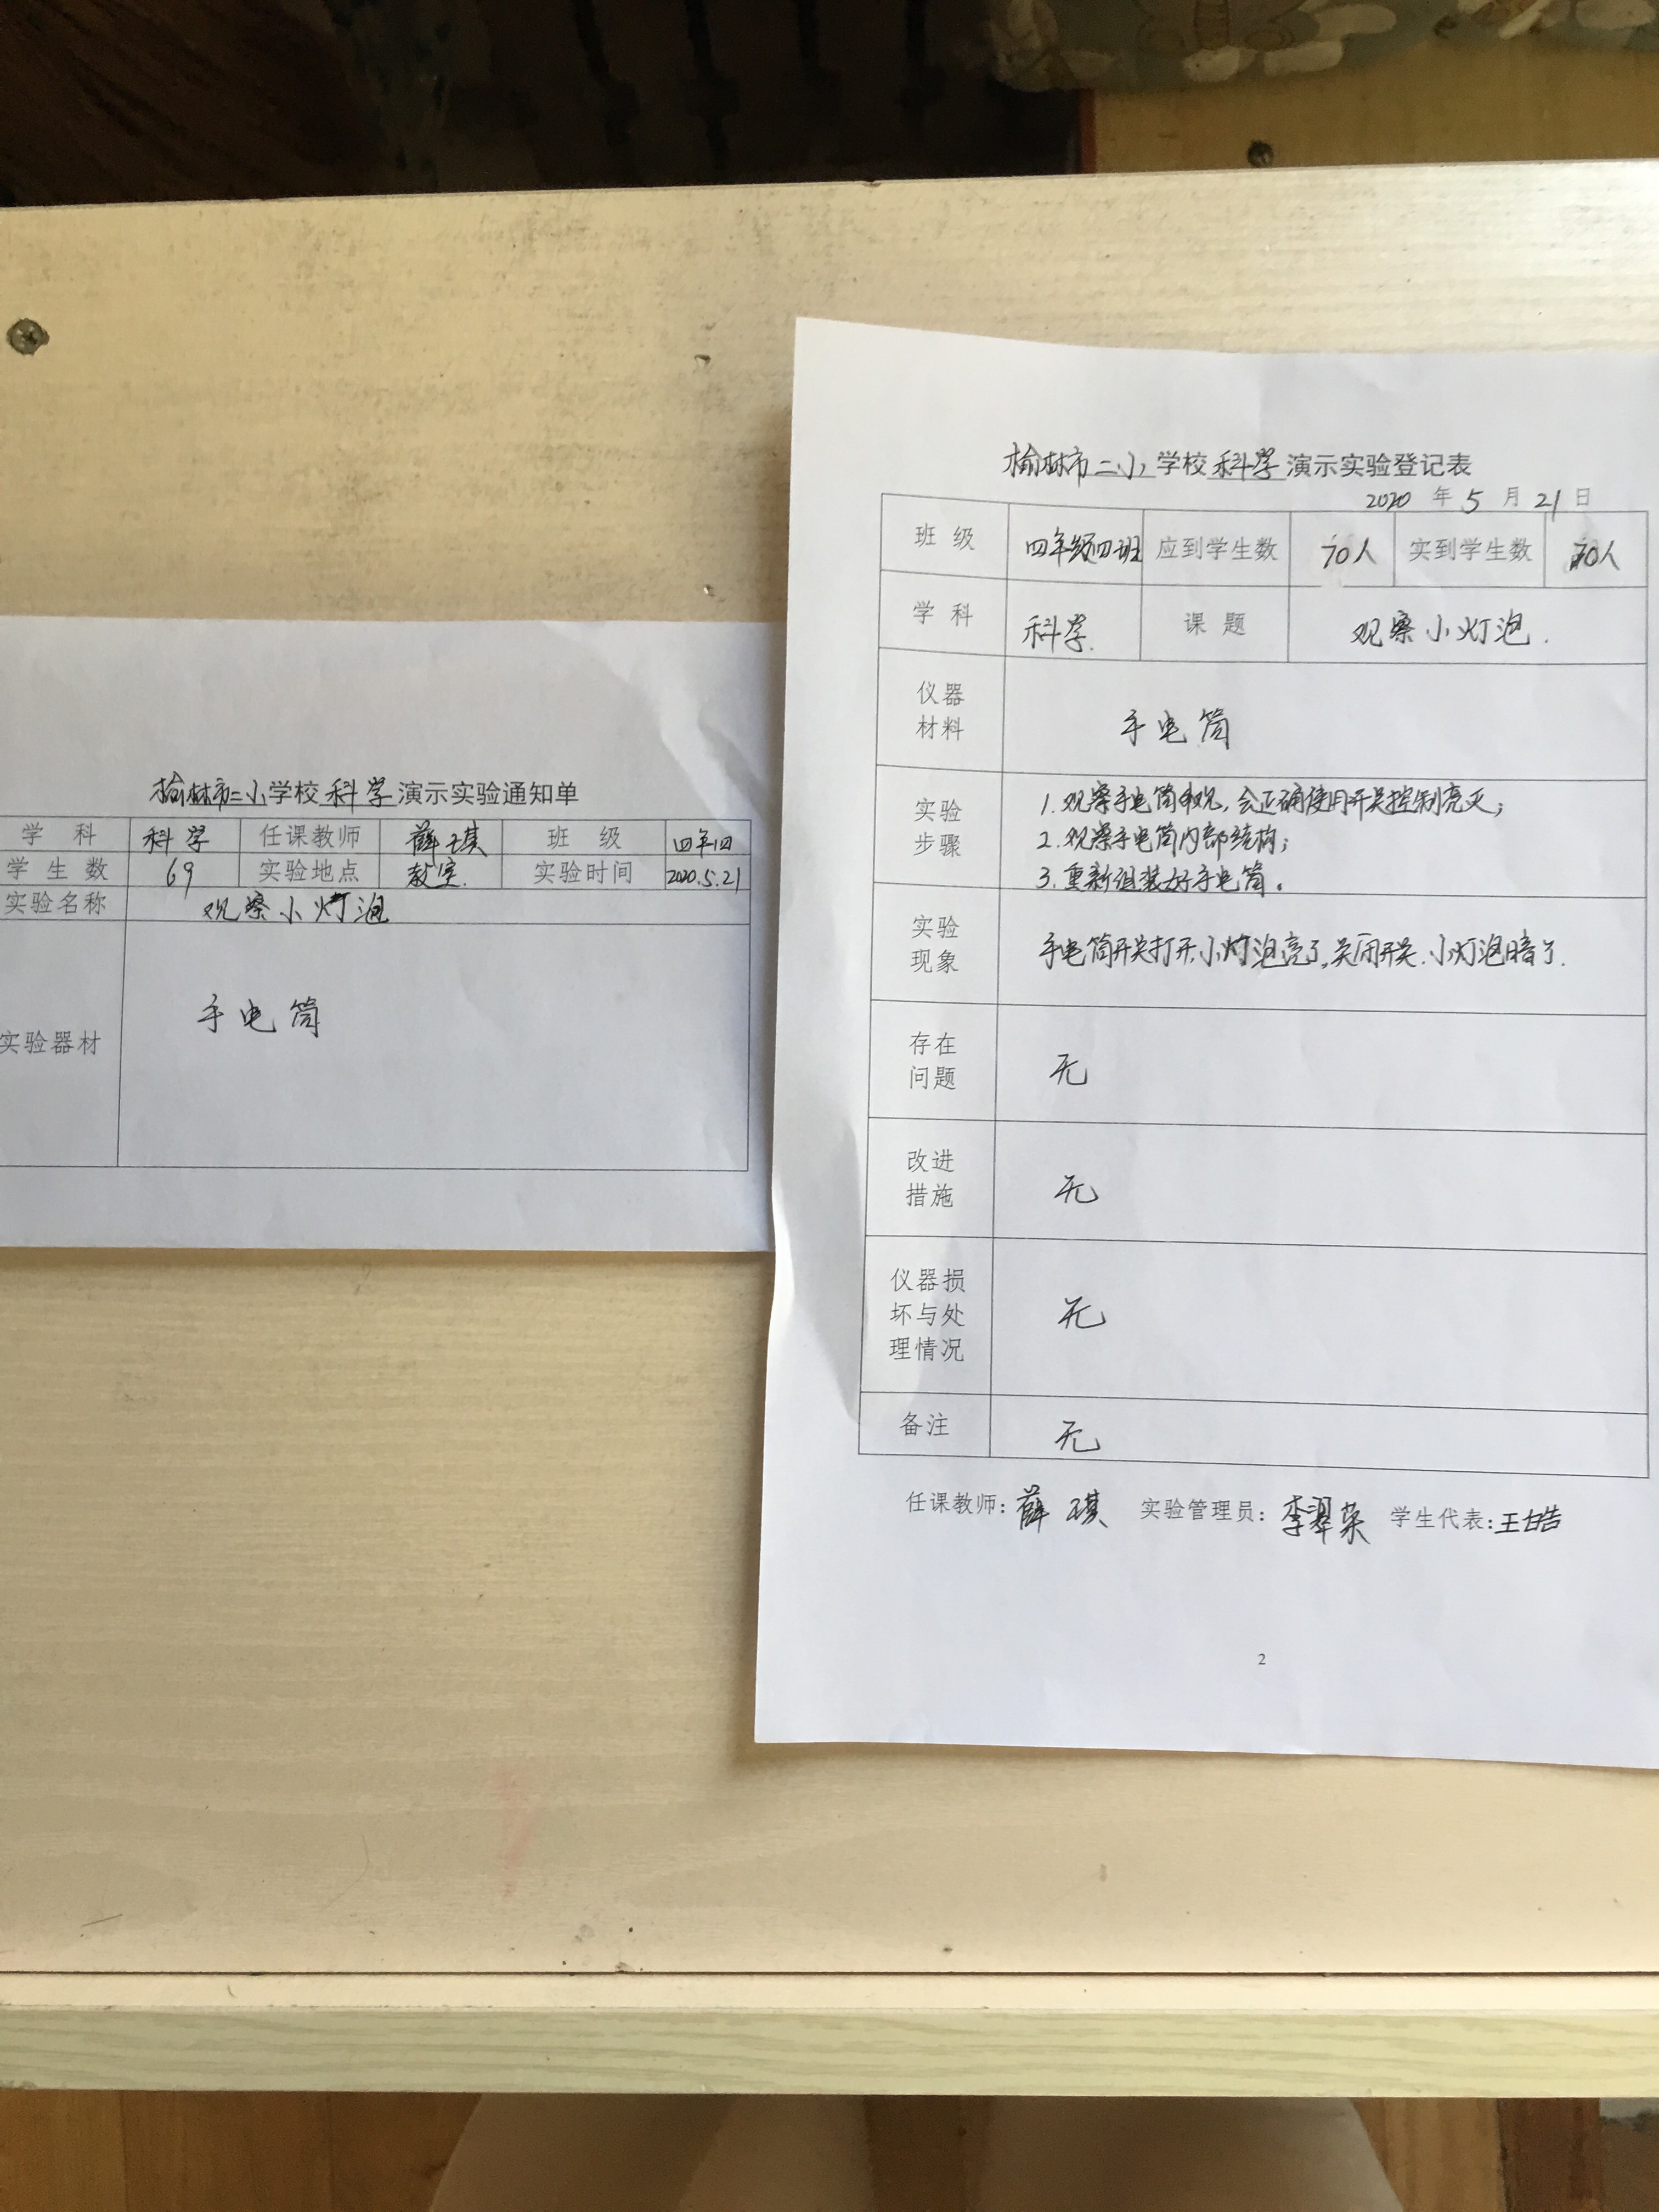 榆林市二小学校科学演示实验通知单
学 科 科学 任课教师 薛琪 班 级 四年四
学生数 69 实验地点 教室. 实验时间 2020.5.21
实验名称 观察小灯泡
实验器材 手电筒
榆林市二小学校科学演示实验登记表
2020 年 5 月 21 日
班 级 四年级四班 应到学生数 70人 实到学生数 70人
学 科 科学. 课 题 观察小灯泡.
仪器
材料
手电筒
实验
步骤
1.观察手电筒外观,会正确使用开关控制亮灭;
2.观察手电筒内部结构;
3.重新组装好手电筒。
实验
现象
手电筒开关打开,小灯泡亮了,关闭开关.小灯泡暗了.
存在
问题
无
改进
措施
无
仪器损
坏与处
理情况
无
备注 无
任课教师:薛琪 实验管理员:李翠荣 学生代表:王皓
2